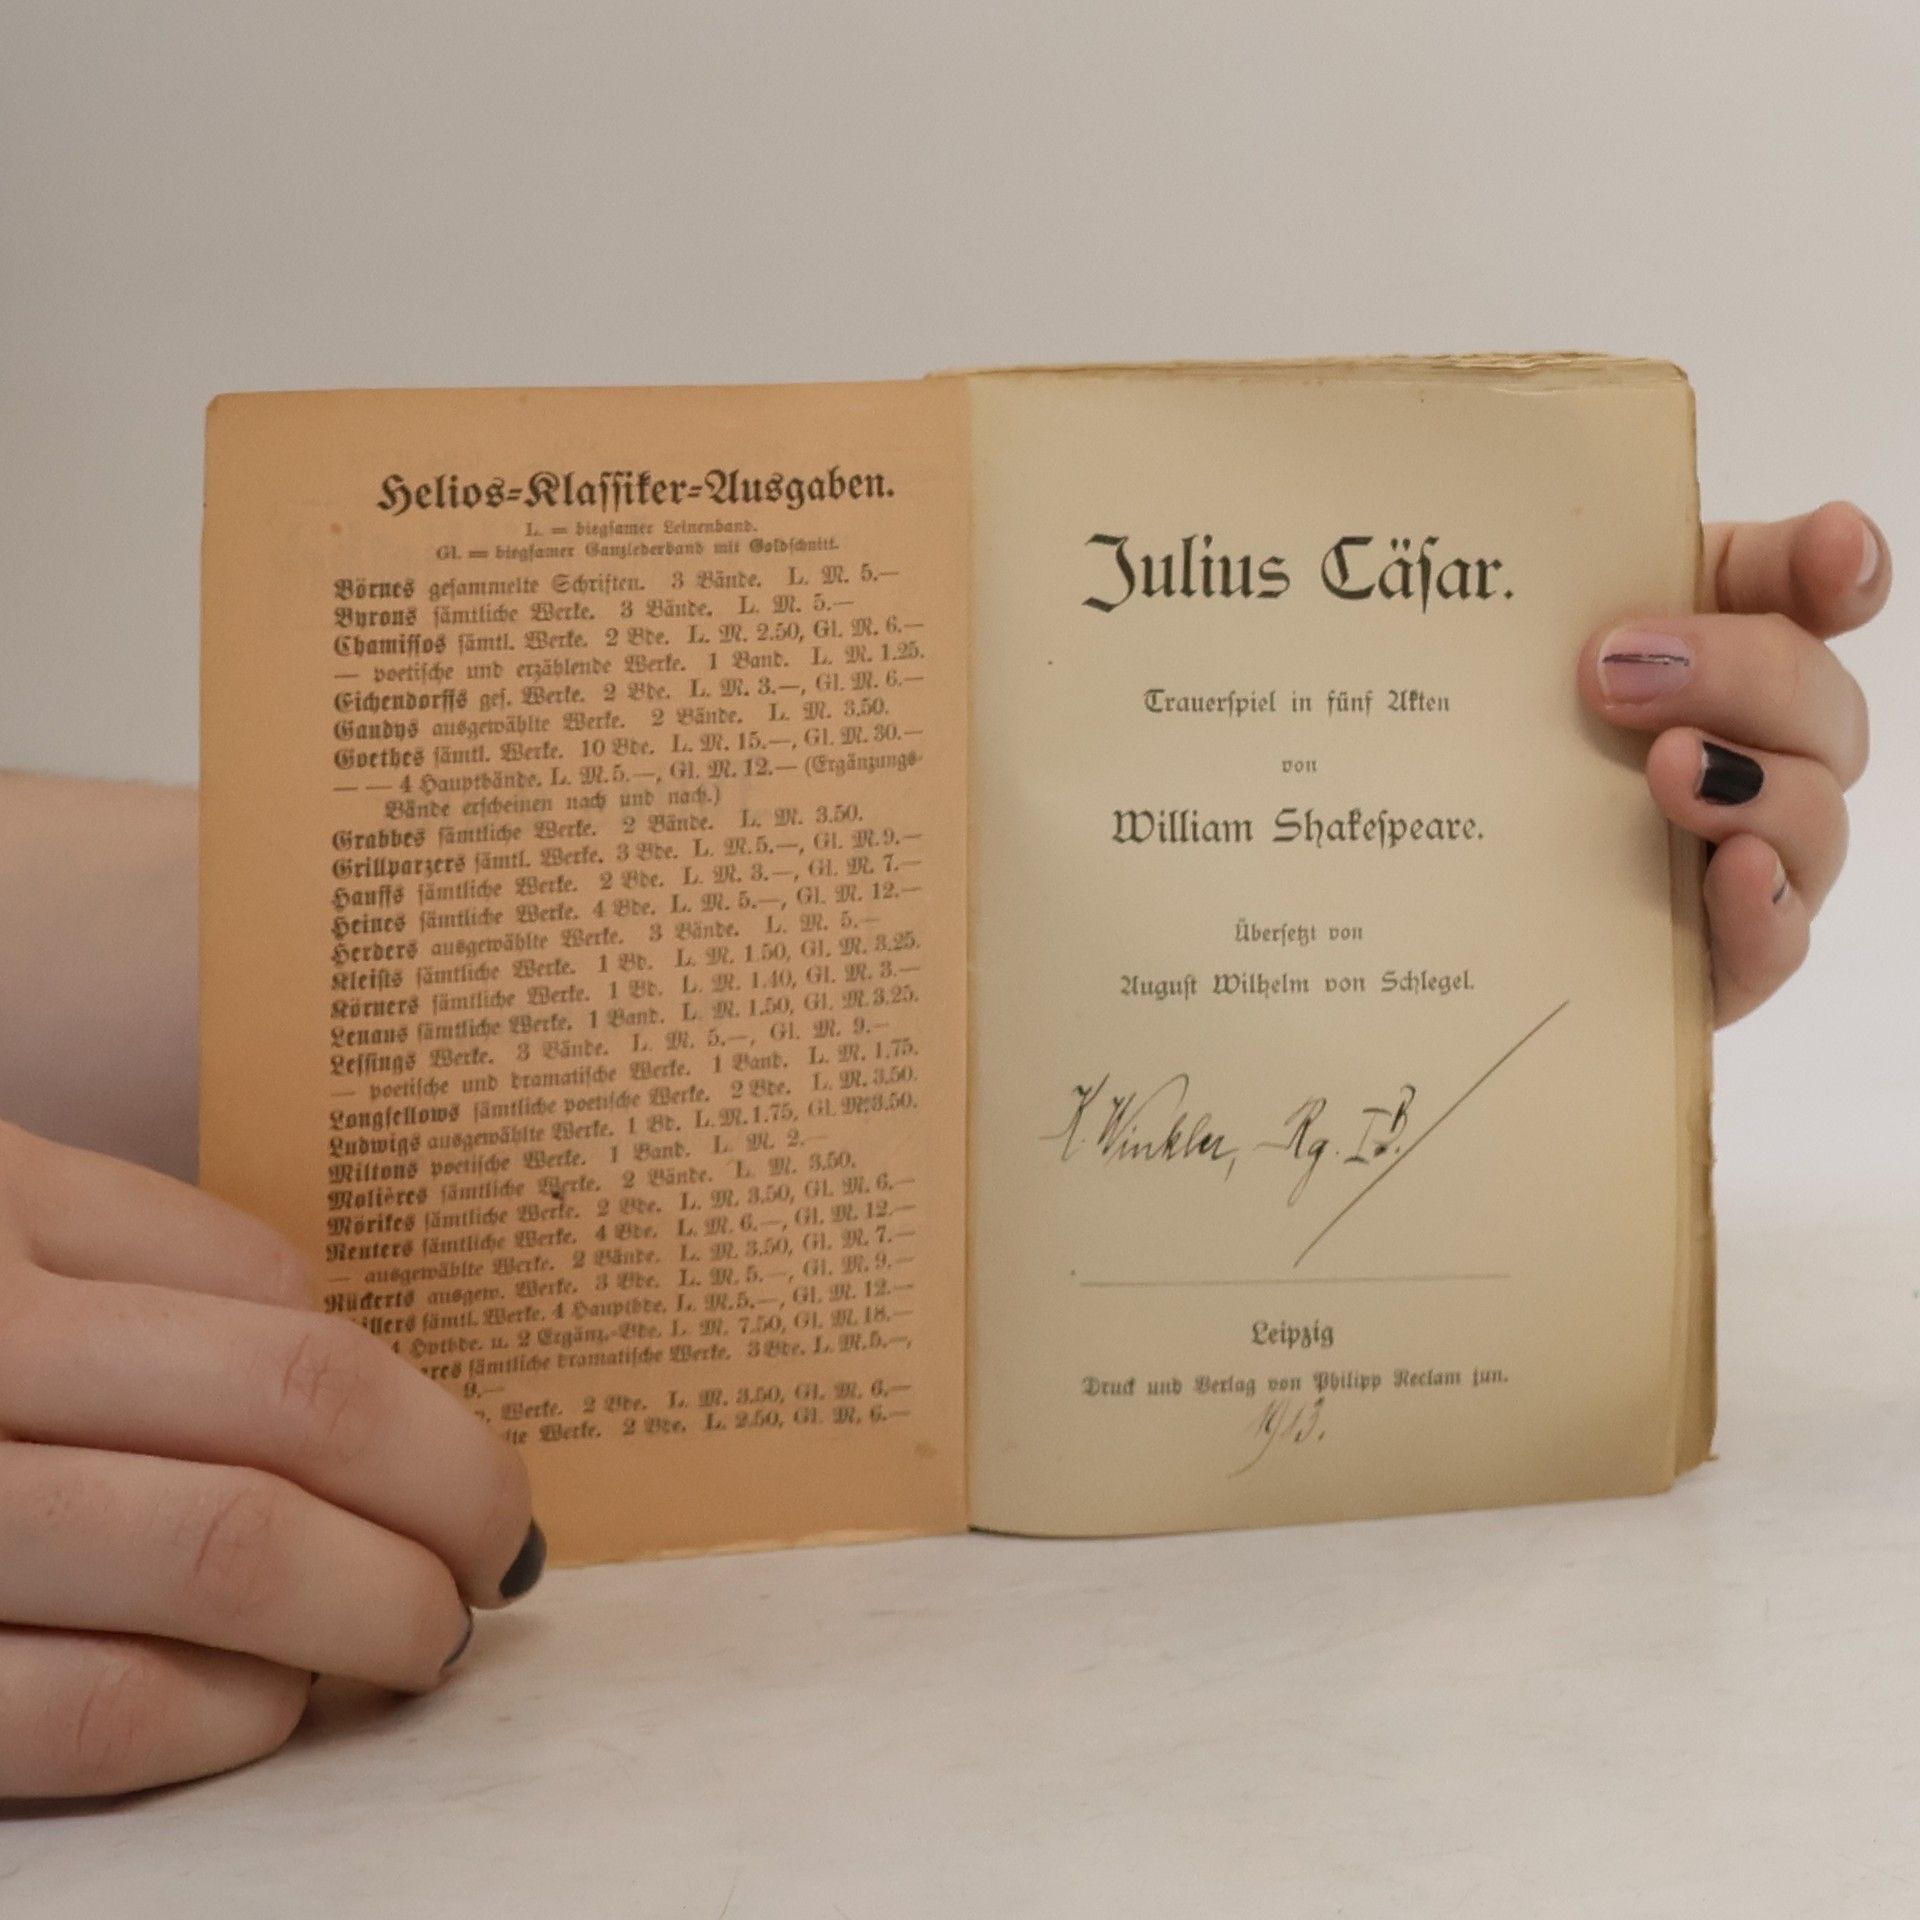 Helios-Klassiker-Ausgaben.
L. = biegsamer Leinenband.
Gl. = biegsamer Ganzlederband mit Goldschnitt.
Börnes gesammelte Schriften. 3 Bände. L. M. 5.—
Byrons sämtliche Werke. 3 Bände. L. M. 5.—
Chamissos sämtl. Werke. 2 Bde. L. M. 2.50, Gl. M. 6.—
— poetische und erzählende Werke. 1 Band. L. M. 1.25.
Eichendorffs ges. Werke. 2 Bde. L. M. 3.—, Gl. M. 6.—
Gaudys ausgewählte Werke. 2 Bände. L. M. 3.50.
Goethes sämtl. Werke. 10 Bde. L. M. 15.—, Gl. M. 30.—
— — 4 Hauptbände. L. M. 5.—, Gl. M. 12.— (Ergänzungs-
Bände erscheinen nach und nach.)
Grabbes sämtliche Werke. 2 Bände. L. M. 3.50.
Grillparzers sämtl. Werke. 3 Bde. L. M. 5.—, Gl. M. 9.—
Hauffs sämtliche Werke. 2 Bde. L. M. 3.—, Gl. M. 7.—
Heines sämtliche Werke. 4 Bde. L. M. 5.—, Gl. M. 12.—
Herders ausgewählte Werke. 3 Bände. L. M. 5.—
Kleists sämtliche Werke. 1 Bd. L. M. 1.50, Gl. M. 3.25.
Körners sämtliche Werke. 1 Bd. L. M. 1.40, Gl. M. 3.—
Lenaus sämtliche Werke. 1 Band. L. M. 1.50, Gl. M. 3.25.
Lessings Werke. 3 Bände. L. M. 5.—, Gl. M. 9.—
— poetische und dramatische Werke. 1 Band. L. M. 1.75.
Longfellows sämtliche poetische Werke. 2 Bde. L. M. 3.50.
Ludwigs ausgewählte Werke. 1 Bd. L. M. 1.75, Gl. M. 3.50.
Miltons poetische Werke. 1 Band. L. M. 2.—
Molières sämtliche Werke. 2 Bände. L. M. 3.50.
Mörikes sämtliche Werke. 2 Bde. L. M. 3.50, Gl. M. 6.—
Reuters sämtliche Werke. 4 Bde. L. M. 6.—, Gl. M. 12.—
— ausgewählte Werke. 2 Bände. L. M. 3.50, Gl. M. 7.—
Rückerts ausgew. Werke. 3 Bde. L. M. 5.—, Gl. M. 9.—
illers sämtl. Werke. 4 Hauptbde. L. M. 5.—, Gl. M. 12.—
4 Hptbde. u. 2 Ergänz.-Bde. L. M. 7.50, Gl. M. 18.—
ares sämtliche dramatische Werke. 3 Bde. L. M. 5.—,
9.—
Werke. 2 Bde. L. M. 3.50, Gl. M. 6.—
lte Werke. 2 Bde. L. 2.50, Gl. M. 6.—
Julius Cäsar.
Trauerspiel in fünf Akten
von
William Shakespeare.
Übersetzt von
August Wilhelm von Schlegel.
K. Winkler, Rg. IB.
Leipzig
Druck und Verlag von Philipp Reclam jun.
1913.